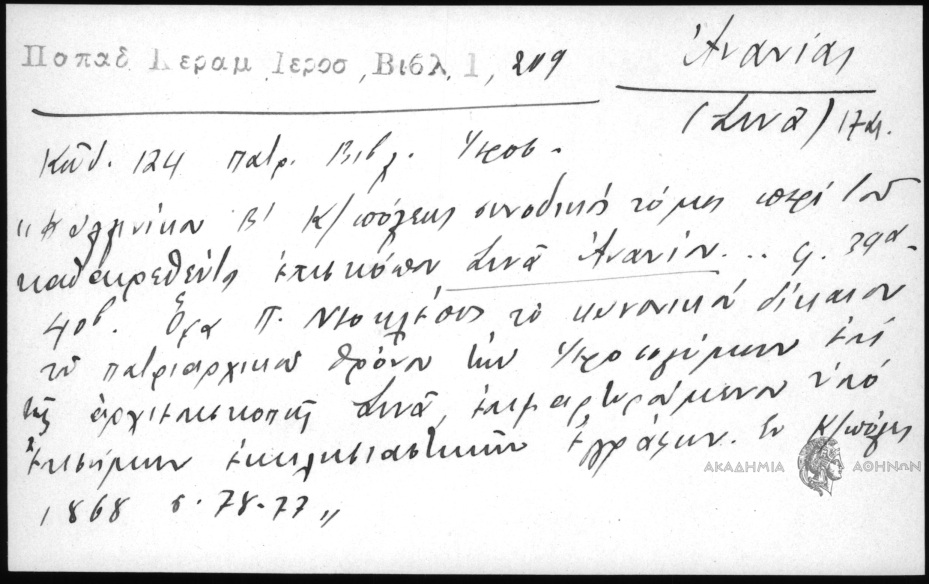 Παπαδ Κεραμ Ιεροσ, Βιβλ, 1, 209
Ἀνανίας
(Σινᾶ) 17 αι.
Κῶδ. 124 πατρ. Βιβλ. Ἱεροσ.
"Καλλινίκου Β' Κ/πόλεως συνοδικὸς τόμος περὶ τοῦ
καθαιρεθέντος ἐπισκόπου Σινᾶ Ἀνανίου... φ. 39α-
40β. Ὅρα Π. Νεοκλέους τὸ κανονικὸν δίκαιον
τοῦ πατριαρχικοῦ θρόνου τῶν Ἱεροσολύμων ἐπὶ
τῆς ἀρχιεπισκοπῆς Σινᾶ, ἐπιμαρτυρούμενον ὑπὸ
ἐπισήμων ἐκκλησιαστικῶν ἐγγράφων. Ἐν Κ/πόλει
1868 σ. 78-77"
ΑΚΑΔΗΜΙΑ ΑΘΗΝΩΝ